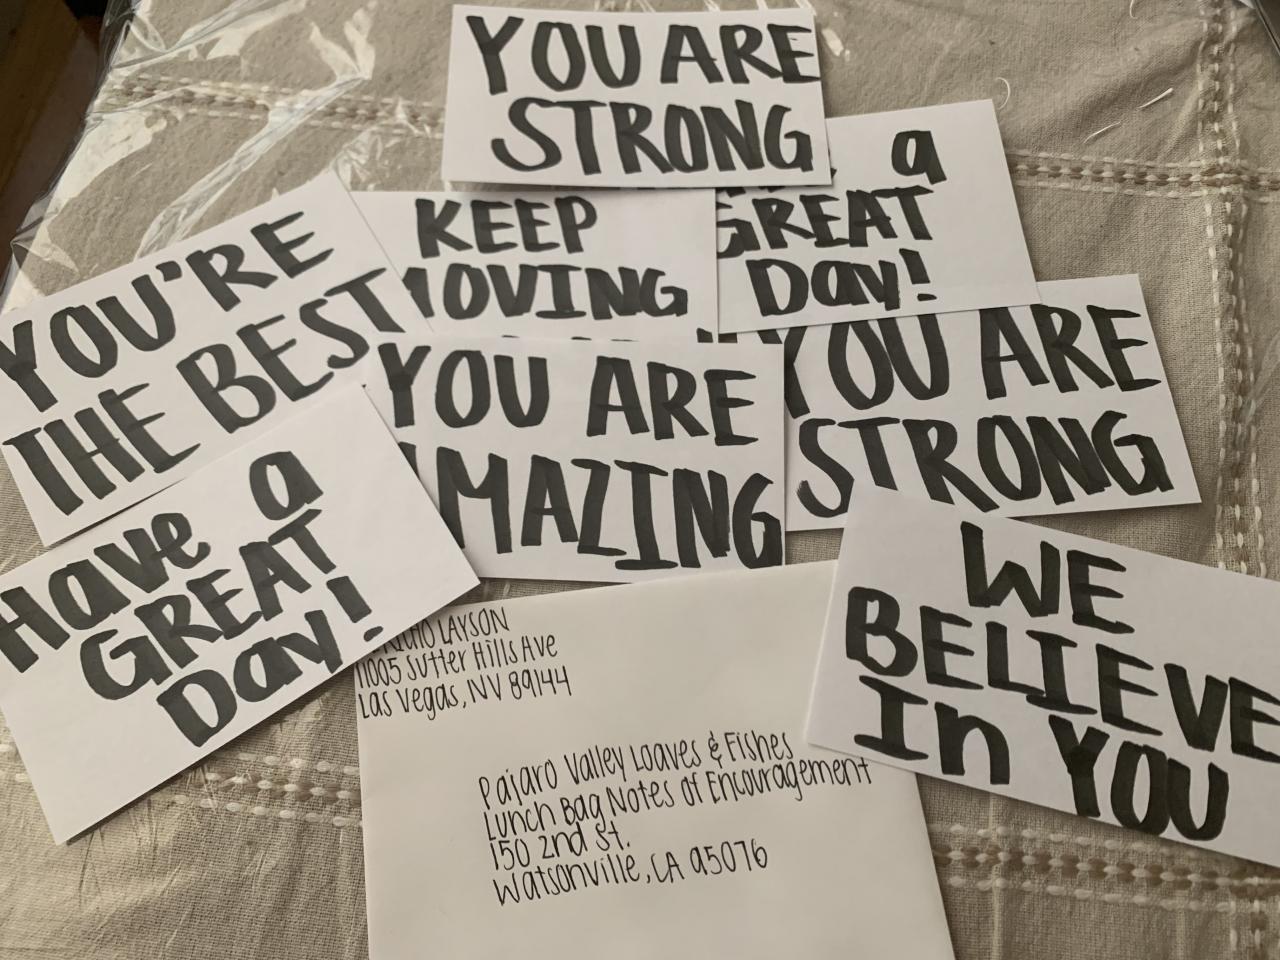 YOU ARE
STRONG
a
GREAT
Day!
KEEP
MOVING
YOU'RE
THE BEST
YOU ARE
AMAZING
YOU ARE
STRONG
Have a
GREAT
Day!
WE
BELIEVE
In YOU
LAYSON
11005 Sutter Hills Ave
Las Vegas, NV 89144
Pajaro Valley Loaves & Fishes
Lunch Bag Notes of Encouragement
150 2nd St.
Watsonville, CA 95076